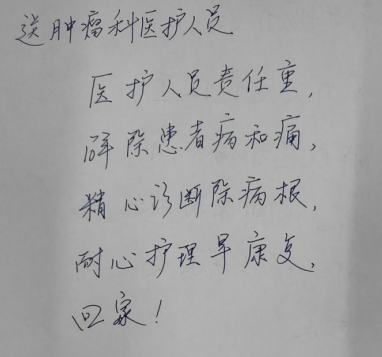 送肿瘤科医护人员
医护人员责任重,
解除患者病和痛,
精心诊断除病根,
耐心护理早康复,
回家!